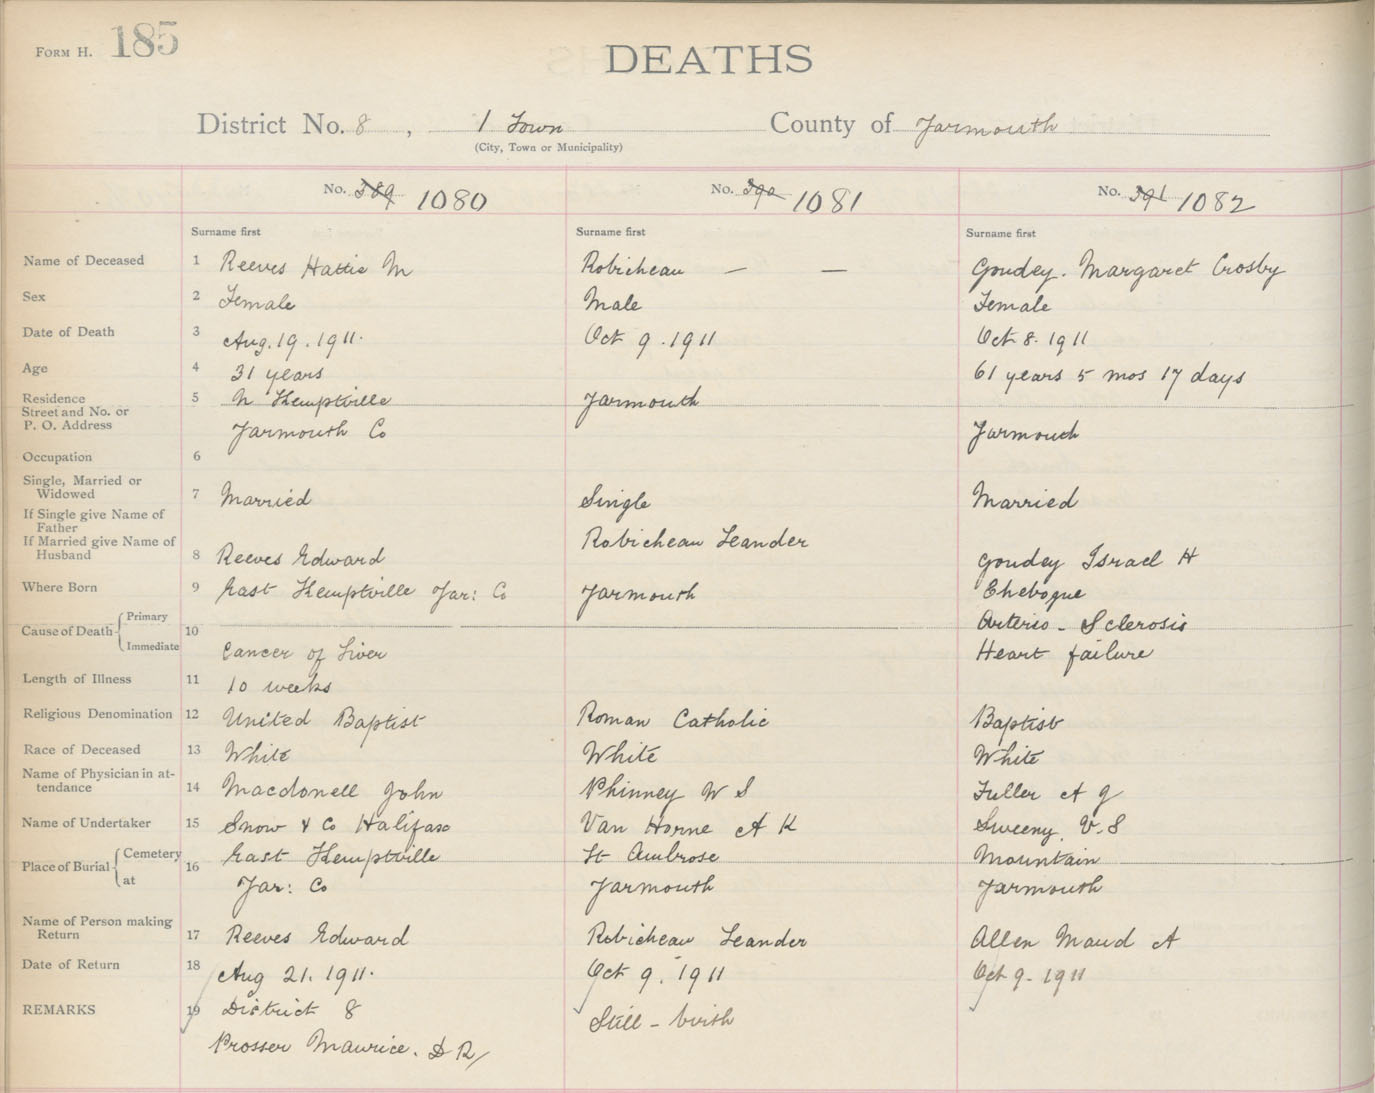 FORM H. 185
DEATHS
District No. 8, 1 Town County of Yarmouth
(City, Town or Municipality)
No. 389 1080 No. 390 1081 No. 391 1082
Surname first Surname first Surname first
Name of Deceased 1 Reeves Hattie M Robicheau — — Goudey. Margaret Crosby
Sex 2 Female Male Female
Date of Death 3 Aug. 19. 1911. Oct 9. 1911 Oct 8. 1911
Age 4 31 years 61 years 5 mos 17 days
Residence 5 N Kemptville Yarmouth
Street and No. or
P. O. Address Yarmouth Co Yarmouth
Occupation 6
Single, Married or
Widowed 7 Married Single Married
If Single give Name of
Father Robicheau Leander
If Married give Name of
Husband 8 Reeves Edward Goudey Israel H
Where Born 9 East Kemptville Yar: Co Yarmouth Chebogue
Cause of Death Primary 10 Arterio - Sclerosis
Immediate Cancer of Liver Heart failure
Length of Illness 11 10 weeks
Religious Denomination 12 United Baptist Roman Catholic Baptist
Race of Deceased 13 White White White
Name of Physician in at-
tendance 14 Macdonell John Phinney W S Fuller A J
Name of Undertaker 15 Snow & Co Halifax Van Horne A K Sweeny V. S
Place of Burial Cemetery 16 East Kemptville St Ambrose Mountain
at Yar: Co Yarmouth Yarmouth
Name of Person making
Return 17 Reeves Edward Robicheau Leander Allen Maud A
Date of Return 18 Aug 21. 1911. Oct 9. 1911 Oct 9. 1911
REMARKS 19 District 8 Still - birth
Prosser Maurice. D R